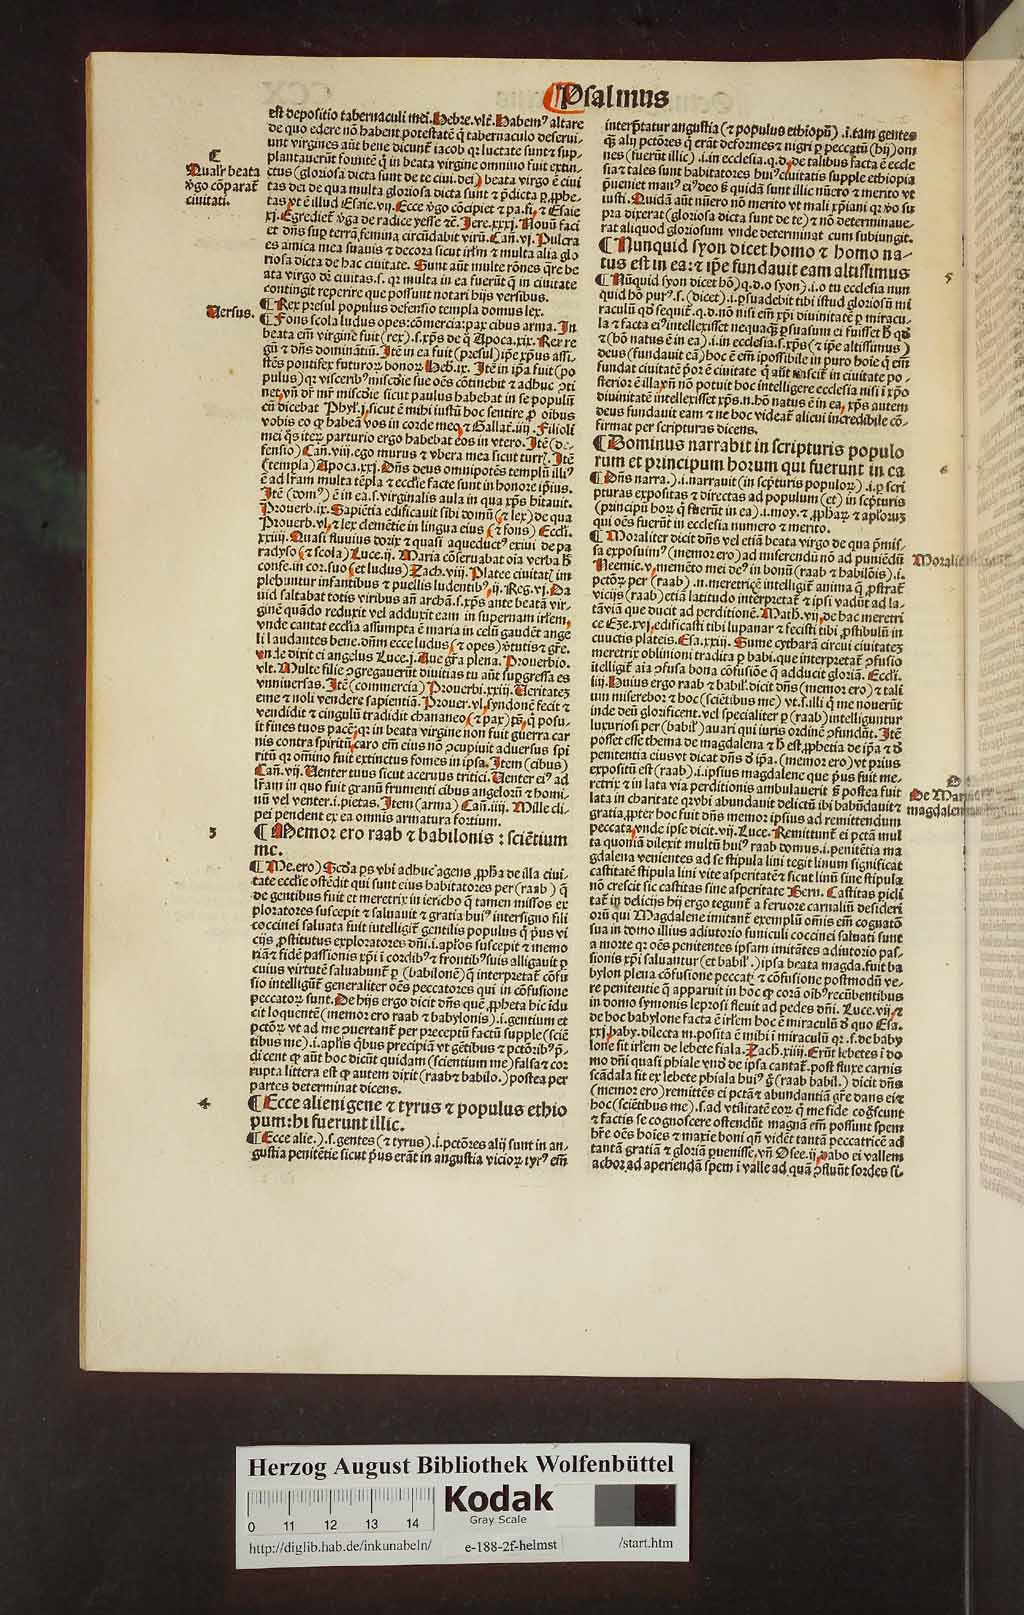 Psalmus
est depositio tabernaculi mei. Hebre. vlt. Habemꝰ altare
de quo edere nō habent potestatē q̄ tabernaculo deserui-
unt virgines aūt bene dicunt̄ iacob qꝛ luctate sunt ⁊ sup-
plantauerūt fomitē q̄ in beata virgine omnino fuit extin-
ctus (gloriosa dicta sunt de te ciui. dei) beata virgo ē ciui
tas dei de qua multa gloriosa dicta sunt ⁊ p̄dicta ꝑ ꝓphe-
tas vt ē illud Esaie. vij. Ecce v̄go cōcipiet ⁊ pa. fi. ⁊ Esaie
xj. Egrediet̄ v̄ga de radice yesse ⁊c̄. Iere. xxxj. Nouū faci
et dn̄s suꝑ terrā femina circūdabit virū. Can̄. vj. Pulcra
es amica mea suauis ⁊ decora sicut irl̄m ⁊ multa alia glo
riosa dicta de hac ciuitate. Sunt aūt multe rōnes q̄re be
ata virgo dē ciuitas. s. qꝛ multa in ea fuerūt q̄ in ciuitate
contingit reperire que possunt notari hijs versibus.
¶ Rex presul populus defensio templa domus lex.
¶ Fons scola ludus opes: cōmercia: pax cibus arma. In
beata em̄ virgine fuit (rex) .s. xp̄s de q̄ Apoca. xix. Rex re
gū ⁊ dn̄s dominātiū. Itē in ea fuit (presul) ip̄e xp̄us assi-
stēs pontifex futuroꝝ bonoꝝ Heb. ix. Itē in ip̄a fuit (po
pulus) qꝛ visceribꝰ miscd̄ie sue oēs cōtinebit ⁊ adhuc ꝯti
net, vn̄ dr̄ mr̄ miscd̄ie sicut paulus habebat in se populū
cū dicebat Phyl. j. sicut ē mihi iustū hoc sentire ꝑ oibus
vobis eo ꝙ habeā vos in corde meo, ⁊ Gallat̄. iiij. Filioli
mei q̄s iteꝝ parturio ergo habebat eos in vtero. Itē (de-
fensio) Can̄. viij. ego murus ⁊ vbera mea sicut turrꝭ. Itē
(templa) Apoca. xxj. Dn̄s deus omnipotēs templū illiꝰ
ē ad lr̄am multa tēpla ⁊ eccl̄ie facte sunt in honorē ip̄ius.
Itē (domꝰ) ē in ea .s. virginalis aula in qua xp̄s bitauit.
Prouerb. ix. Sapiētia edificauit sibi domū (⁊ lex) de qua
Prouerb. vl. ⁊ lex clemētie in lingua eius (⁊ fons) Eccl̄i.
xxiiij. Quasi fluuius dorix ⁊ quasi aqueductꝰ exiui de pa
radyso (⁊ scola) Luce. ij. Maria cōseruabat oīa verba h̄
confe. in cor. suo (et ludus) Zach. viij. Platee ciuitatꝭ im
plebuntur infantibus ⁊ puellis ludentibꝰ, ij. Reg. vj. Da
uid saltabat totis viribus an̄ archā .s. xp̄s ante beatā vir-
ginē quādo reduxit vel adduxit eam in supernam irl̄em,
vnde cantat eccl̄ia assumpta ē maria in celū gaudēt ange
li laudantes bene. dn̄m ecce ludus (⁊ opes) v̄tutis ⁊ gr̄e.
vnde dixit ei angelus Luce. j. Aue gr̄a plena. Prouerbio.
vlt. Multe filie ꝯgregauerūt diuitias tu aūt suꝑgressa es
vnniuersas. Itē (commercia) Prouerbi. xxiij. Veritatez
eme ⁊ noli vendere sapientiā. Prouer. vl. syndonē fecit ⁊
vendidit ⁊ cingulū tradidit chananeo (⁊ pax) ꝑs̄. q̄ posu-
it fines tuos pacē, qꝛ in beata virgine non fuit guerra car
nis contra spiritū, caro em̄ eius nō ꝯcupiuit aduersus spi
ritū qꝛ omnino fuit extinctus fomes in ipsa. Item (cibus)
Can̄. vij. Venter tuus sicut aceruus tritici. Venter eiꝰ ad
lr̄am in quo fuit granū frumenti cibus angeloꝝ ⁊ homi-
nū vel venter .i. pietas. Item (arma) Can̄. iiij. Mille cli-
pei pendent ex ea omnis armatura fortium.
¶ Memor ero raab ⁊ babilonis : sciētium
me.
¶ (Me. ero) Scd̄a ps vbi adhuc agens, ꝓph̄a de illa ciui-
tate eccl̄ie ostēdit qui sunt eius habitatores per (raab) q̄
de gentibus fuit et meretrix in iericho q̄ tamen missos ex
ploratores suscepit ⁊ saluauit ⁊ gratia huiꝰ intersigno fili
coccinei saluata fuit intelligit̄ gentilis populus q̄ p̄us vi
cijs ꝓstitutus exploratores dn̄i .i. apl̄os suscepit ⁊ memo
riā ⁊ fidē passionis xp̄i ī cordibꝰ ⁊ frontibꝰ suis alligauit ꝑ
cuius virtutē saluabunt̄ ꝑ (babilonē) q̄ interpretat̄ cōfu
sio intelligūt̄ generaliter oēs peccatores qui in cōfusione
peccatoꝝ sunt. De hijs ergo dicit dn̄s quē ꝓpheta hic idu
cit loquentē (memor ero raab ⁊ babylonis) .i. gentium et
pctōꝝ vt ad me ꝯuertant̄ per preceptū factū supple (sciē
tibus me) .i. apl̄is q̄bus precipiā vt gētibus ⁊ pctōribꝰ p̄-
dicent ꝙ aūt hoc dicūt quidam (scientium me) falsa ⁊ cor
rupta littera est ꝙ autem dixit (raab ⁊ babilo.) postea per
partes determinat dicens.
¶ Ecce alienigene ⁊ tyrus ⁊ populus ethio
pum: hi fuerunt illic.
¶ Ecce alie.) .s. gentes (⁊ tyrus) .i. pctōres alij sunt in an-
gustia penitētie sicut p̄us erāt in angustia vicioꝝ tyrꝰ em̄
interp̄tatur angustia (⁊ populus ethiopū) .i. tam gentes
q̄ꝫ alij pctōres q̄ erāt deformes ⁊ nigri ꝑ peccatū (hij) om
nes (fuerūt illic) .i. in ecclesia. q. d. de talibus facta ē eccle
sia ⁊ tales sunt habitatores huiꝰ ciuitatis supple ethiopia
p̄ueniet manꝰ eiꝰ deo ꝫ quidā sunt illic nūero ⁊ merito vt
iusti. Quidā aūt nūero nō merito vt mali xpiani qꝛ v̄o su
pra dixerat (gloriosa dicta sunt de te) ⁊ nō determinaue-
rat aliquod gloriosum vnde determinat cum subiungit.
¶ Nunquid syon dicet homo ⁊ homo na-
tus est in ea: ⁊ ip̄e fundauit eam altissimus
¶ Nūquid syon dicet hō) q. d. o syon) .i. o tu ecclesia nun
quid hō purꝰ .s. (dicet) .i. ꝑsuadebit tibi istud gloriosū mi
raculū qd̄ sequit̄. q. d. nō nisi em̄ xp̄i diuinitatē ꝑ miracu-
la ⁊ facta eiꝰ intellexisset nequaq̄ꝫ ꝑsuasum ei fuisset h̄ qd̄
⁊ (hō natus ē in ea) .i. in ecclesia .s. xp̄s (⁊ ip̄e altissimus)
deus (fundauit eā) hoc ē em̄ ipossibile in puro hoīe q̄ em̄
fundat ciuitatē p̄or ē ciuitate q̄ aūt nascit̄ in ciuitate po-
sterior ē illa, vn̄ nō potuit hoc intelligere ecclesia nisi ī xp̄o
diuinitatē intellexisset xp̄s. n. hō natus ē in ea, xp̄s autem
deus fundauit eam ⁊ ne hoc videat̄ alicui incredibile cō-
firmat per scripturas dicens.
¶ Dominus narrabit in scripturis populo
rum et principum horum qui fuerunt in ea
¶ Dn̄s narra.) .i. narrauit (in scp̄turis populoꝝ) .i. ꝑ scri
pturas expositas ⁊ directas ad populum (et) in scp̄turis
(principū hoꝝ q̄ fuerūt in ea) .i. moy. ⁊ ꝓphaꝝ ⁊ apl̄oruꝫ
qui oēs fuerūt in ecclesia numero ⁊ merito.
¶ Moraliter dicit dn̄s vel etiā beata virgo de qua p̄mis-
sa exposuimꝰ (memor ero) ad miserendū nō ad puniēdū
Neemie. v. memēto mei deꝰ in bonū (raab ⁊ babilōis) .i.
pctōꝝ per (raab) .n. meretricē intelligit̄ anima q̄ ꝓstrat̄
vicijs (raab) etiā latitudo interpretat̄ ⁊ ipsi vadūt ad la-
tā viā que ducit ad perditionē. Math. vij. de hac meretri
ce Eze. xvj. edificasti tibi lupanar ⁊ fecisti tibi ꝓstibulū in
cunctis plateis. Esa. xxiij. Sume cytharā circui ciuitatez
meretrix obliuioni tradita ꝑ babi. que interpretat̄ ꝯfusio
ītelligit̄ aīa ꝯfusa bona cōfusiōe q̄ adducit gloriā. Eccl̄i.
iiij. Huius ergo raab ⁊ babil̄. dicit dn̄s (memor ero) ⁊ tali
um miserebor ⁊ hoc (sciētibus me) vt .s. illi q̄ me nouerūt
inde deū glorificent. vel specialiter ꝑ (raab) intelliguntur
luxuriosi per (babil̄) auari qui iuris ordinē ꝯfundūt. Itē
posset esse thema de magdalena ⁊ h̄ est ꝓphetia de ip̄a ⁊ d̄
penitentia eius vt dicat dn̄s d̄ ip̄a. (memor ero) vt prius
expositū est (raab) .i. ipsius magdalene que p̄us fuit me-
retrix ⁊ in lata via perditionis ambulauerit ꝫ postea fuit
lata in charitate qꝛ vbi abundauit delictū ibi habūdauit ⁊
gratia, ꝓpter hoc fuit dn̄s memor ipsius ad remittendum
peccata, vnde ipse dicit. vij. Luce. Remittunt̄ ei pctā mul
ta quoniā dilexit multū huiꝰ raab domus .i. penitētia ma
gdalena venientes ad se stipula lini tegit linum significat
castitatē stipula lini vite asperitatē ⁊ sicut linū sine stipula
nō crescit sic castitas sine asperitate Bern. Castitas picli
tat̄ in delicijs hij ergo tegunt̄ a feruore carnaliū desideri
orū qui Magdalene imitant̄ exemplū oīmis em̄ cognatō
sua in domo illius adiutorio funiculi coccinei saluati sunt
a morte qꝛ oēs penitentes ipsam imitātes adiutorio pas-
sionis xp̄i saluantur (et babil̄.) ipsa beata magda. fuit ba
bylon plena cōfusione peccati ⁊ cōfusione postmodū ve-
re penitentie q̄ apparuit in hoc ꝙ corā oībꝰ recūbentibus
in domo symonis leprosi fleuit ad pedes dn̄i. Luce. vij. ⁊
de hoc babylone facta ē irl̄em hoc ē miraculū d̄ quo Esa.
xxj. baby. dilecta m. posita ē mihi ī miraculū qꝛ .s. de baby
lone fit irl̄em de lebete fiala. Zach. xiiij. Erūt lebetes ī do
mo dn̄i quasi phiale vnd̄ de ipsa cantat̄. post fluxe carnis
scādala fit ex lebete phiala huiꝰ q̄ (raab babil.) dicit dn̄s
(memor ero) remittēs ei pctā ⁊ abundantiā gr̄e dans ei ⁊
hoc (sciētibus me) .s. ad vtilitatē eoꝝ q̄ me fide coḡscunt
⁊ factis se cognoscere ostendūt magnā em̄ possunt spem
hr̄e oēs hoīes ⁊ maxīe boni qn̄ vidēt tantā peccatricē ad
tantā gratiā ⁊ gloriā ꝑuenisse, vn̄ Osee. ij. dabo ei vallem
achor ad aperiendā spem ī valle ad quā ꝯfluūt sordes si-
C
Qualr̄ beata
v̄go cōparat̄
ciuitati.
Versus.
3
4
5
6
De Mar
magdalen
Herzog August Bibliothek Wolfenbüttel
0 11 12 13 14
Kodak
Gray Scale
http://diglib.hab.de/inkunabeln/ e-188-2f-helmst /start.htm